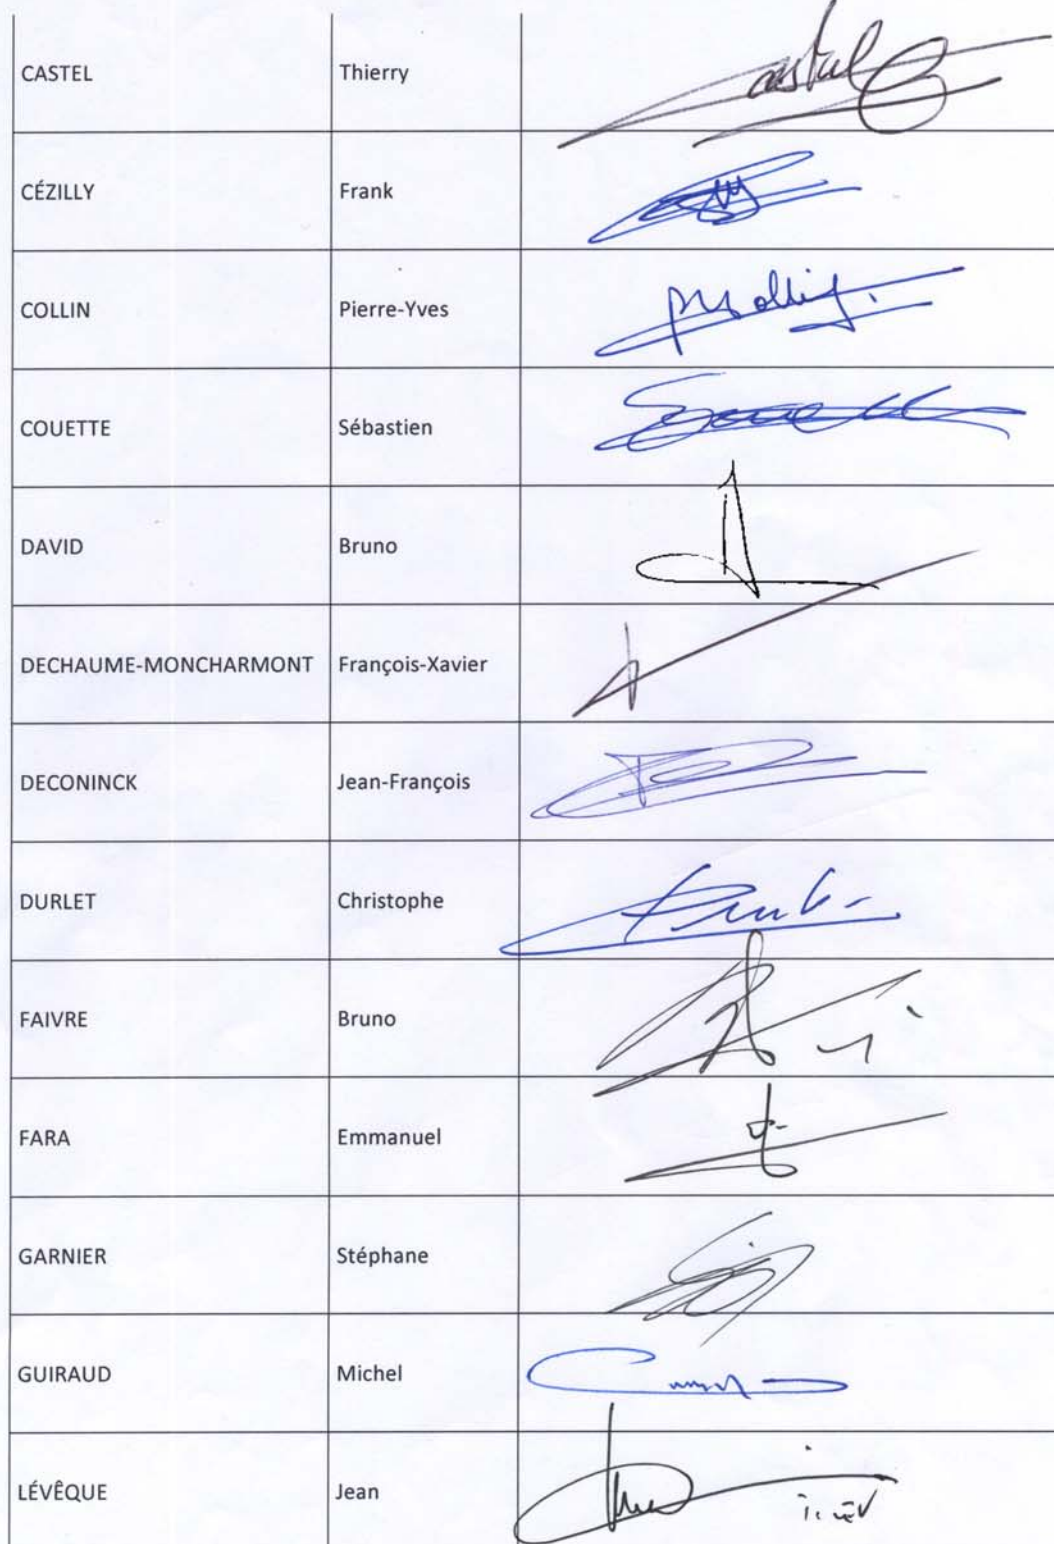 CASTEL Thierry
CÉZILLY Frank
COLLIN Pierre-Yves
COUETTE Sébastien
DAVID Bruno
DECHAUME-MONCHARMONT François-Xavier
DECONINCK Jean-François
DURLET Christophe
FAIVRE Bruno
FARA Emmanuel
GARNIER Stéphane
GUIRAUD Michel
LÉVÊQUE Jean